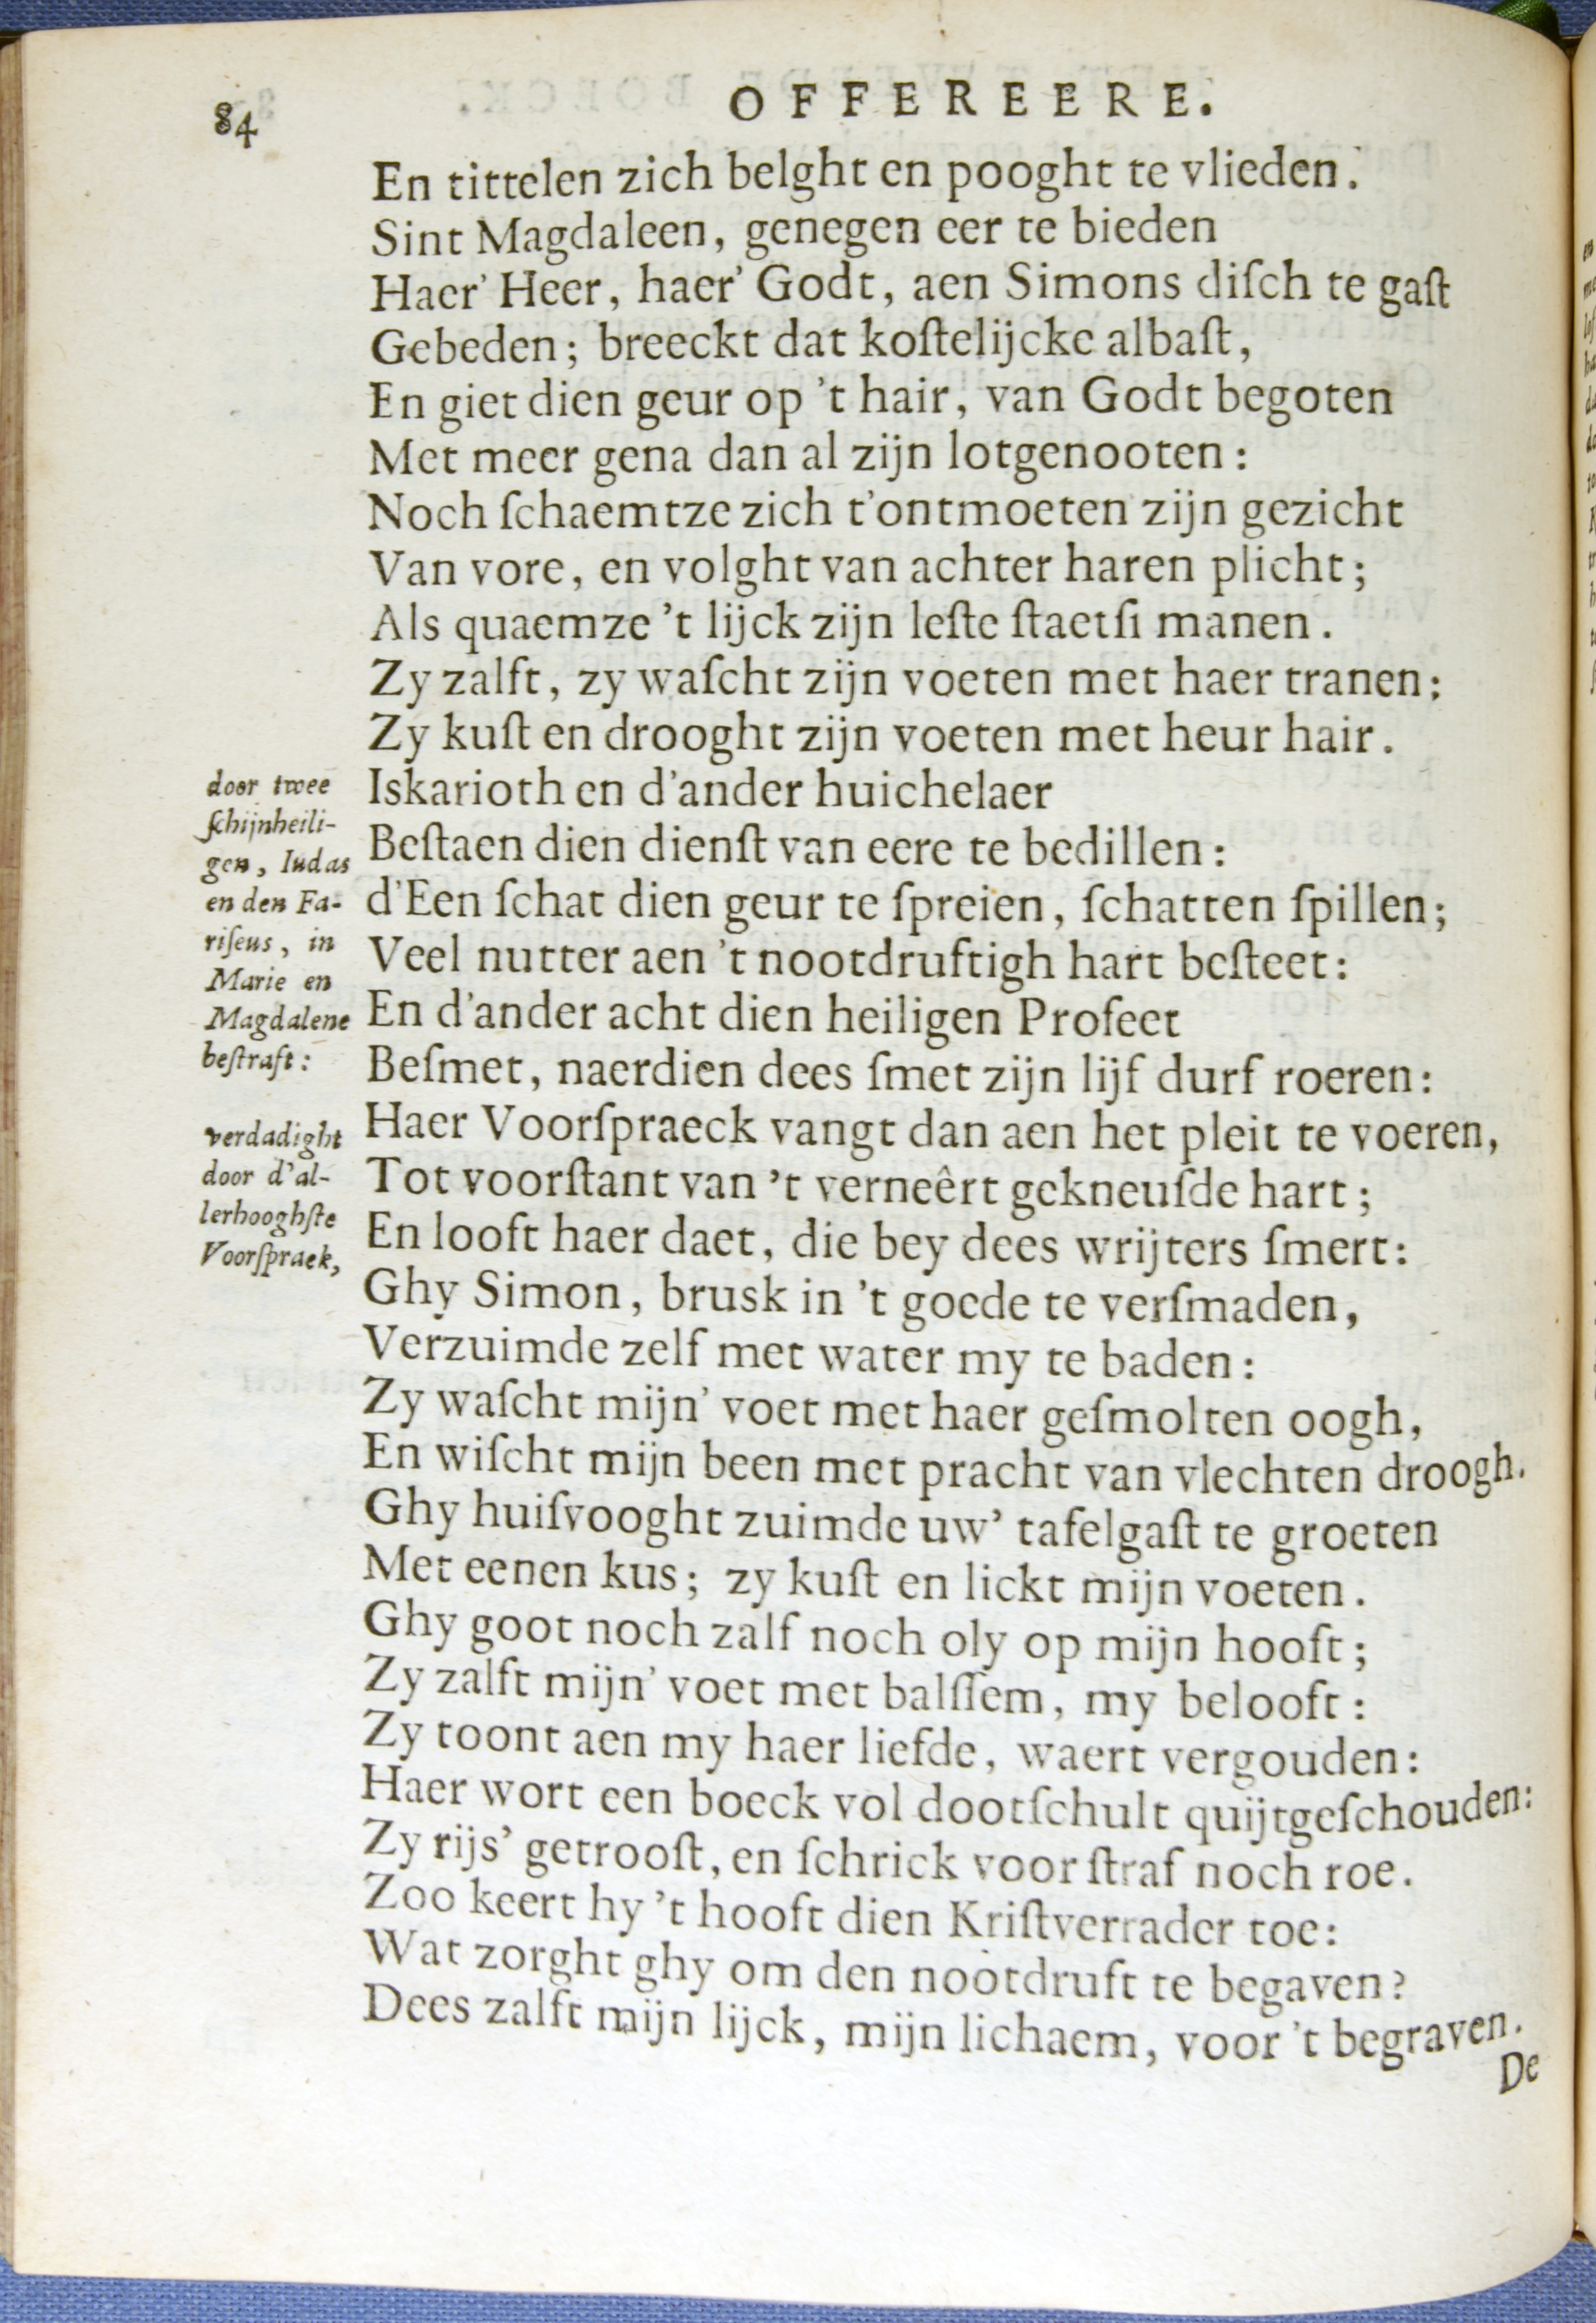 84
OFFEREERE.
En tittelen zich belght en pooght te vlieden.
Sint Magdaleen, genegen eer te bieden
Haer' Heer, haer' Godt, aen Simons diſch te gaſt
Gebeden; breeckt dat koſtelijcke albaſt,
En giet dien geur op 't hair, van Godt begoten
Met meer gena dan al zijn lotgenooten:
Noch ſchaemtze zich t'ontmoeten zijn gezicht
Van vore, en volght van achter haren plicht;
Als quaemze 't lijck zijn leſte ſtaetſi manen.
Zy zalft, zy waſcht zijn voeten met haer tranen:
Zy kuſt en drooght zijn voeten met heur hair.
Iskarioth en d'ander huichelaer
Beſtaen dien dienſt van eere te bedillen:
d'Een ſchat dien geur te ſpreien, ſchatten ſpillen;
Veel nutter aen 't nootdruftigh hart beſteet:
En d'ander acht dien heiligen Profeet
Beſmet, naerdien dees ſmet zijn lijf durf roeren:
Haer Voorſpraeck vangt dan aen het pleit te voeren,
Tot voorſtant van 't verneêrt gekneuſde hart;
En looft haer daet, die bey dees wrijters ſmert:
Ghy Simon, brusk in 't goede te verſmaden,
Verzuimde zelf met water my te baden:
Zy waſcht mijn' voet met haer geſmolten oogh,
En wiſcht mijn been met pracht van vlechten droogh.
Ghy huiſvooght zuimde uw' tafelgaſt te groeten
Met eenen kus; zy kuſt en lickt mijn voeten.
Ghy goot noch zalf noch oly op mijn hooft;
Zy zalft mijn' voet met balſſem, my belooft:
Zy toont aen my haer liefde, waert vergouden:
Haer wort een boeck vol dootſchult quijtgeſchouden:
Zy rijs' getrooſt, en ſchrick voor ſtraf noch roe.
Zoo keert hy 't hooft dien Kriſtverrader toe:
Wat zorght ghy om den nootdruft te begaven?
Dees zalft mijn lijck, mijn lichaem, voor 't begraven.
De
door twee
ſchijnheili-
gen, Iudas
en den Fa-
riſeus, in
Marie en
Magdalene
beſtraft:
verdadight
door d'al-
lerhooghſte
Voorſpraek,